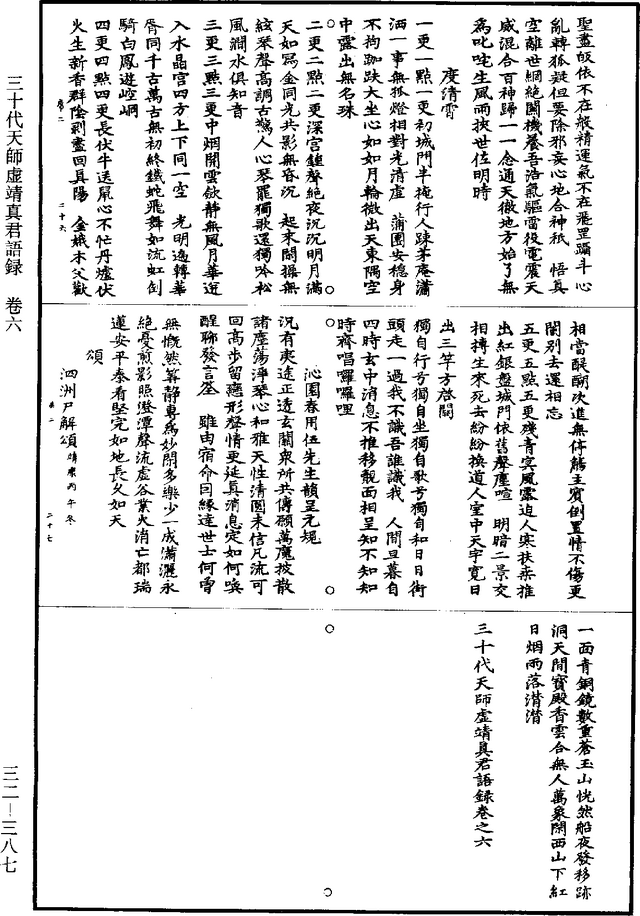 聖盡皈依不在般精運氣不在飛罡躡斗心
亂轉狐疑但要除邪妄心地合神祇　悟真
空離世網絶關機養吾浩氣驅雷役電震天
威混合百神歸一一念通天徹地方始了無
爲叱咤生風雨挾世佐明時
度清霄
一更一點一更初城門半掩行人踈茅庵瀟
洒一事無孤燈相對光清虛　蒲團安穩身
不拘跏趺大坐心如如月輪微出天東隅空
中露出無名珠
二更二點二更深宮鐘聲絶夜沉沉明月滿
天如寫金同光共影無昏沉　起來閑操無
絃琴聲高調古驚人心琴罷獨歌還獨吟松
風澗水俱知音
三更三點三更中烟開雲歛靜無風月華迸
入水晶宮四方上下同一空　光明遶轉華
胥同千古萬古無初終鐵蛇飛舞如流虹倒
騎白鳳遊崆峒
四更四點四更長伏牛送鼠心不忙丹爐伏
火生新香群陰剝盡回真陽　金娥木父歡
相當醍醐次進無停觴主賓倒置情不傷更
闌别去還相忘
五更五點五更殘青冥風露迫人寒扶桒推
出紅銀盤城門依舊聲塵喧　明暗二景交
相摶生來死去紛紛換道人室中天宇寬日
出三竿方啓關
獨自行兮獨自坐獨自歌兮獨自和日日街
頭走一過我不識吾誰識我　人間旦暮自
四時玄中消息不推移覿面相呈知不知知
時齊唱囉囉哩
沁園春用伍先生韻呈元規
況有夷途正透玄關衆所共傳願萬魔披散
諸塵蕩滌琴心和雅天性清圓未信凡流可
回高步留戀形聲情更延真消息定如何喚
醒聊發言筌　雖由宿命因緣達世士何曾
無慨然筭靜專爲妙閙多樂少一成瀟灑永
絶憂煎影照澄潭聲流虛谷業火消亡都瑞
蓮安平泰看堅完如地長久如天
頌
泗洲尸解頌靖康丙午冬
一面青銅鏡數重蒼玉山恍然船夜發移跡
洞天間寶殿香雲合無人萬象閑西山下紅
日烟雨落潸潸
三十代天師虛靖真君語錄卷之六
三十代天師虛靖真君語録　卷六
三二—三八七
卷二
二十六
卷二
二十七